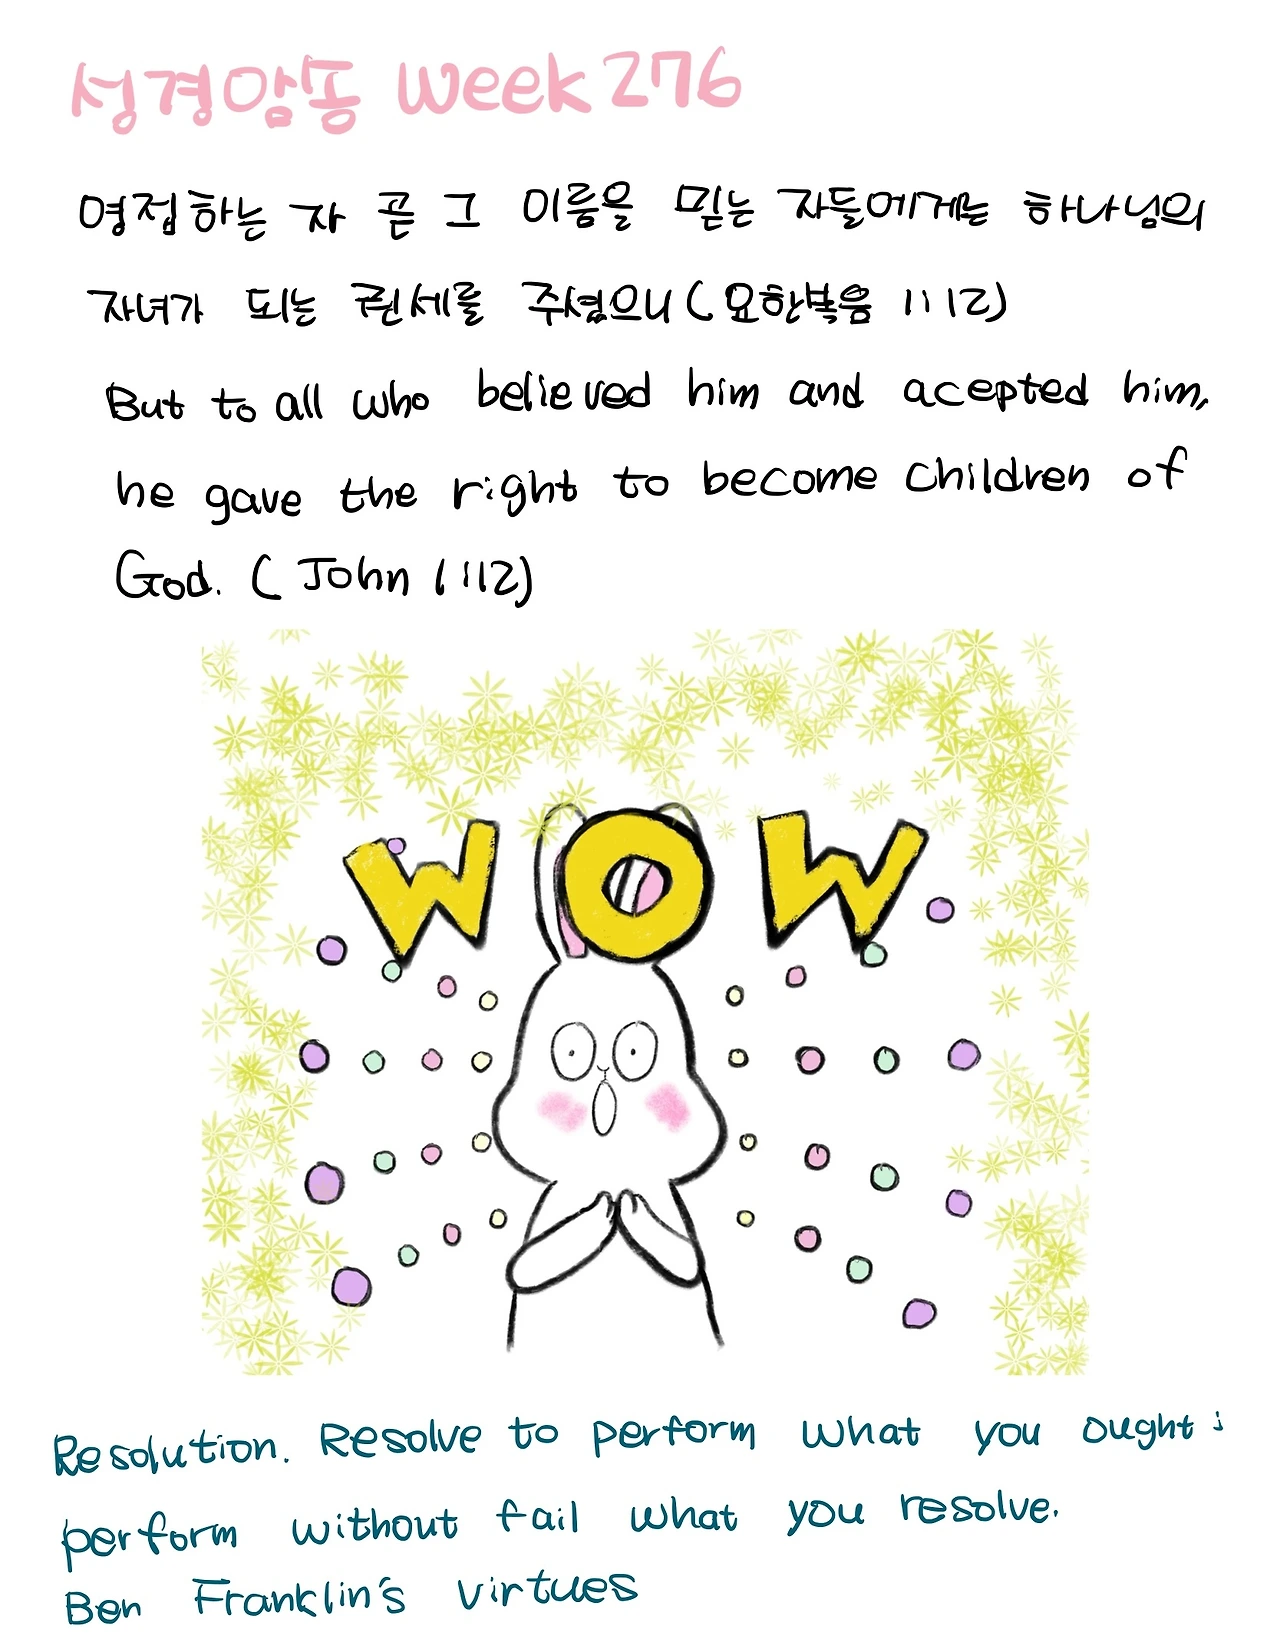 성경암송 week 276
영접하는 자 곧 그 이름을 믿는 자들에게는 하나님의
자녀가 되는 권세를 주셨으니 (요한복음 1:12)
But to all who believed him and acepted him,
he gave the right to become children of
God. (John 1:12)
WOW
Resolution. Resolve to perform what you ought;
perform without fail what you resolve.
Ben Franklin's virtues